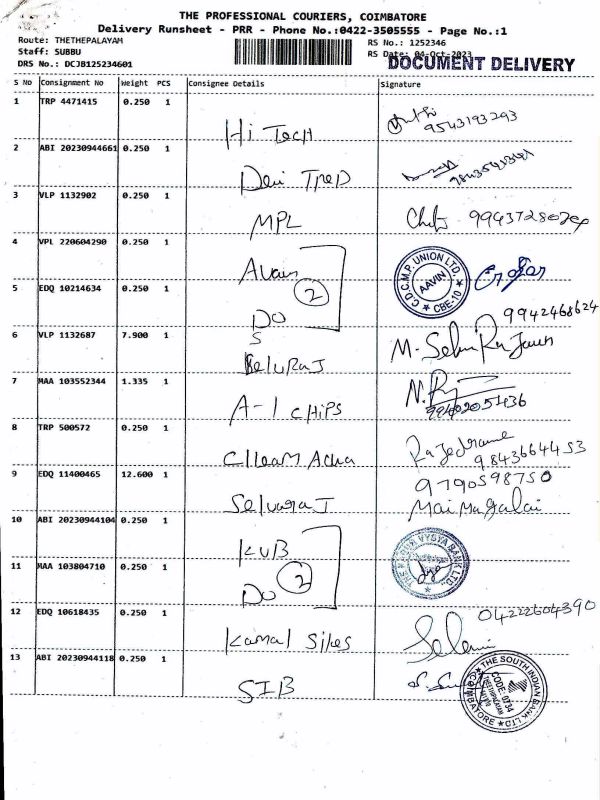 THE PROFESSIONAL COURIERS, COIMBATORE
Delivery Runsheet - PRR - Phone No.:0422-3505555 - Page No.:1
Route: THETHEPALAYAM
Staff: SUBBU
DRS No.: DCJB125234601
RS No.: 1252346
RS Date: 04-Oct-2023
DOCUMENT DELIVERY
S No Consignment No Weight PCS Consignee Details Signature
1 TRP 4471415 0.250 1 Hi Tech 9543193293
2 ABI 20230944661 0.250 1
3 VLP 1132902 0.250 1 MPL
4 VPL 220604290 0.250 1
C.D.C.M.P. UNION LTD. AAVIN CBE-10
5 EDQ 10214634 0.250 1 DO 2
9942468624
6 VLP 1132687 7.900 1 SeluRaJ
7 MAA 103552344 1.335 1 A-1 CHiPS
8 TRP 500572 0.250 1 9843664453
9 EDQ 11400465 12.600 1 SelvaraJ 9790598750
10 ABI 20230944104 0.250 1 KVB
THE KARUR VYSYA BANK LTD
11 MAA 103804710 0.250 1 DO 2
12 EDQ 10618435 0.250 1 Kamal 04222604390
13 ABI 20230944118 0.250 1 SIB
THE SOUTH INDIAN BANK LTD COIMBATORE CODE: 0734